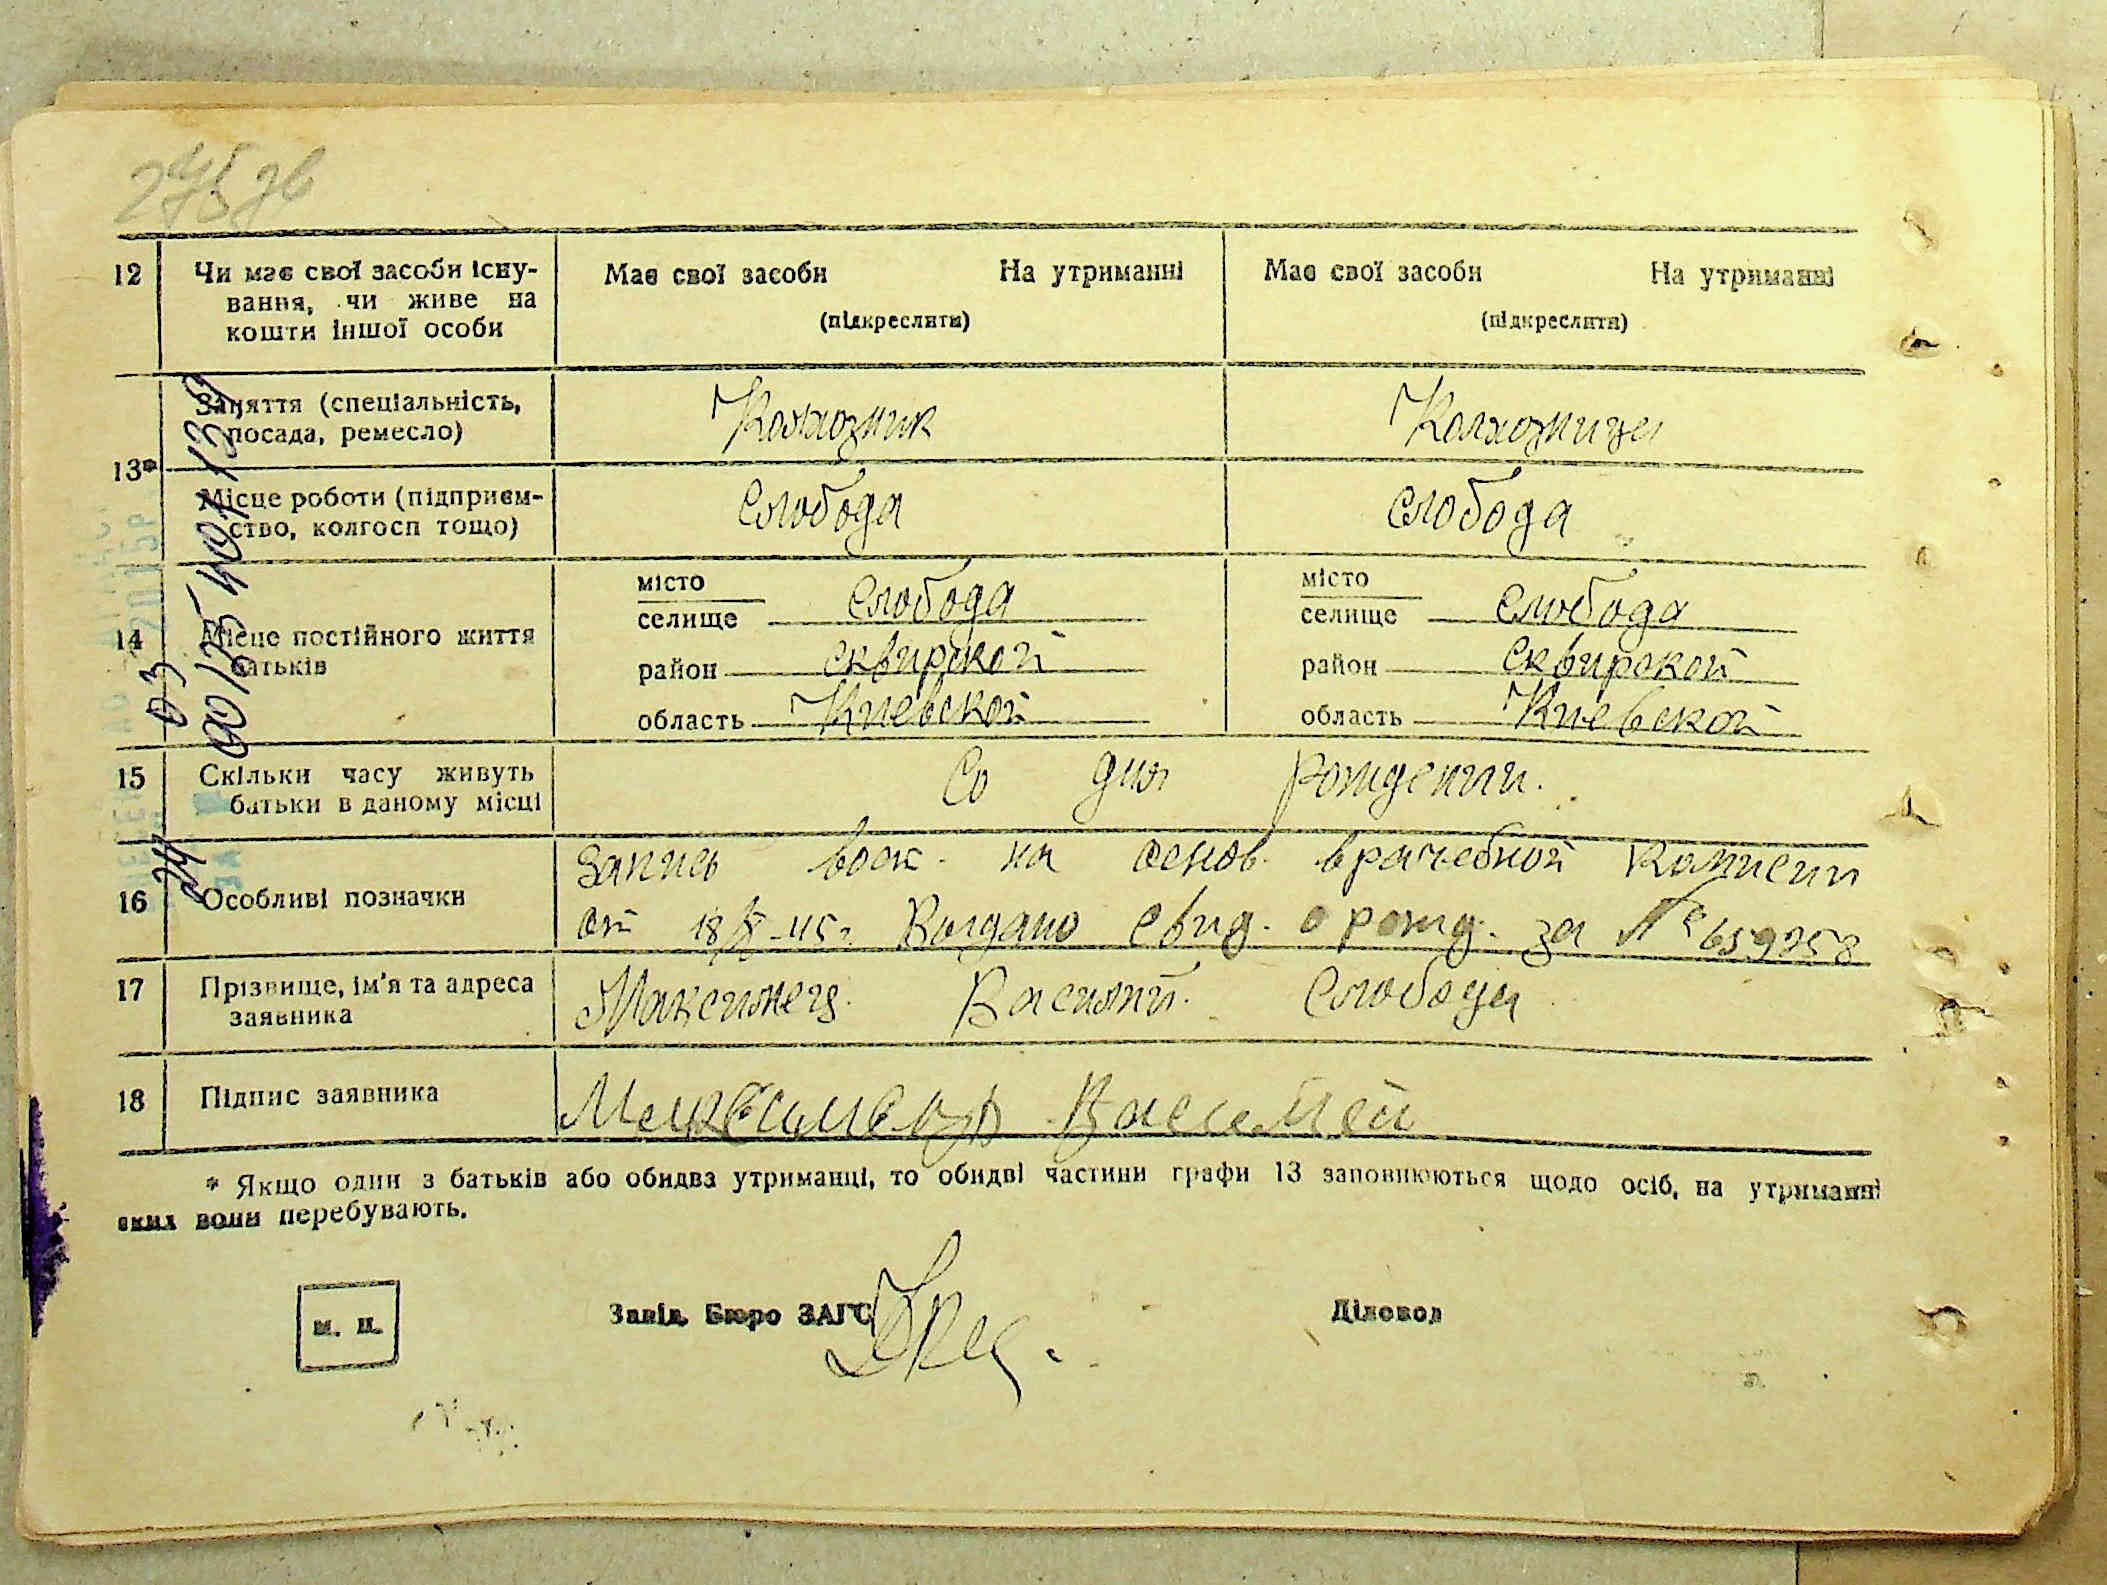 12 Чи має свої засоби існу-
вання, чи живе на
кошти іншої особи
Має свої засоби На утриманні
(підкреслити)
Має свої засоби На утриманні
(підкреслити)
13*
Заняття (спеціальність,
посада, ремесло)
Колхозник
Колхозница
Місце роботи (підприєм-
ство, колгосп тощо)
Слобода
Слобода
14 Місце постійного життя
батьків
місто
селище Слобода
район Сквирской
область Киевской
місто
селище Слобода
район Сквирской
область Киевской
15 Скільки часу живуть
батьки в даному місці
Со дня рождения.
16 Особливі позначки
Запись вост. на основ. врачебной комисии
от 18/X-45г. Выдано свид. о рожд. за № 659258
17 Прізвище, ім'я та адреса
заявника
Василий. Слобода
18 Підпис заявника
* Якщо один з батьків або обидва утриманці, то обидві частини графи 13 заповнюються щодо осіб, на утриманні
яких вони перебувають.
м. п.
Завід. Бюро ЗАГС
Діловод
00135401139
03